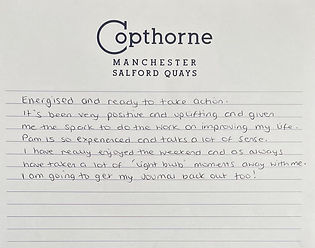 Copthorne
MANCHESTER
SALFORD QUAYS
Energised and ready to take action.
It's been very positive and uplifting and given
me the spark to do the work on improving my life.
Pam is so experienced and talks a lot of sense.
I have really enjoyed the weekend and as always
have taken a lot of 'light bulb' moments away with me.
I am going to get my Journal back out too!